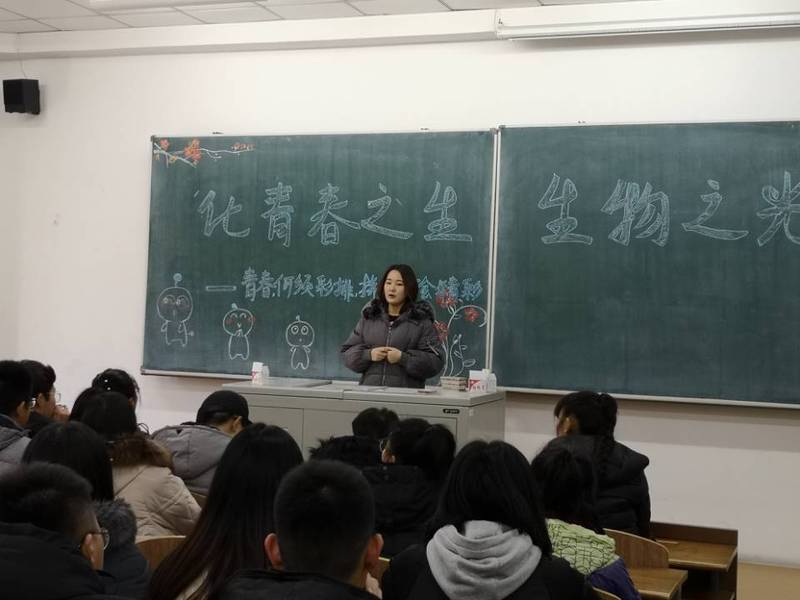 化青春之生 生物之光
——青春何须彩排,
会精彩